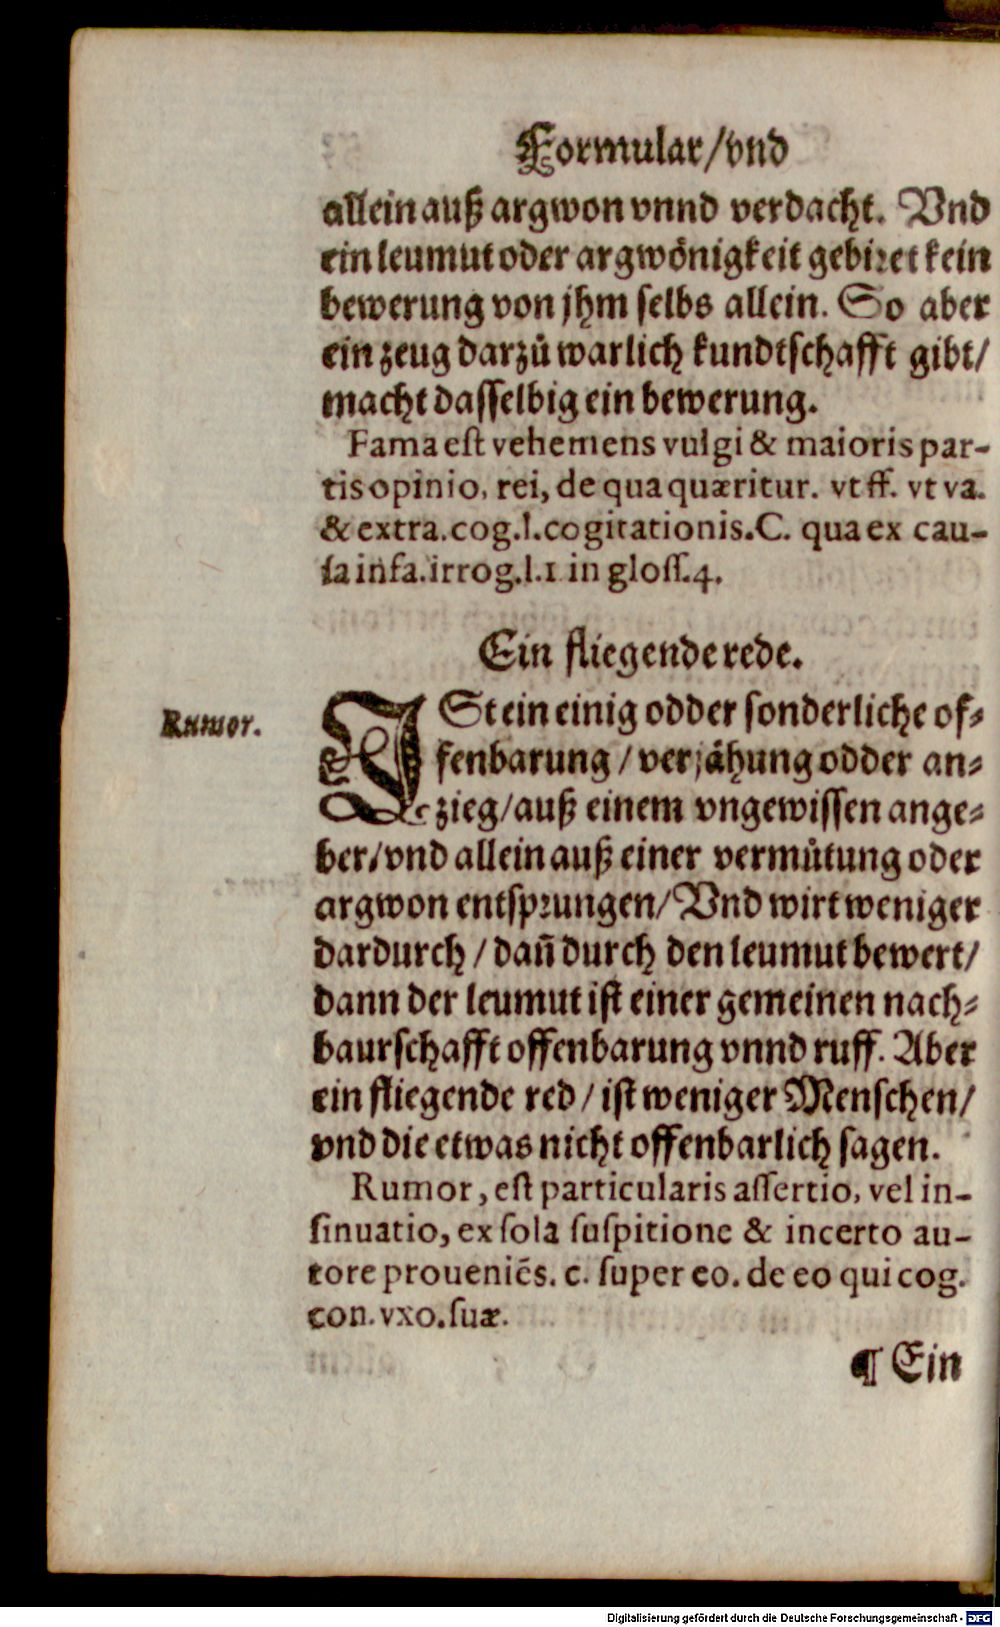 Formular/vnd
allein auß argwon vnnd verdacht. Vnd
ein leumut oder argwönigkeit gebiret kein
bewerung von jhm selbs allein. So aber
ein zeug darzů warlich kundtschafft gibt/
macht dasselbig ein bewerung.
Fama est vehemens vulgi & maioris par-
tis opinio, rei, de qua quæritur. vt ff. vt va.
& extra.cog.l.cogitationis.C. qua ex cau-
sa infa.irrog.l.1 in gloss.4.
Ein fliegende rede.
Rumor.
ISt ein einig odder sonderliche of-
fenbarung / verjähung odder an-
zieg/auß einem vngewissen ange-
ber/vnd allein auß einer vermůtung oder
argwon entsprungen/ Vnd wirt weniger
dardurch / dañ durch den leumut bewert/
dann der leumut ist einer gemeinen nach-
baurschafft offenbarung vnnd ruff. Aber
ein fliegende red / ist weniger Menschen/
vnd die etwas nicht offenbarlich sagen.
Rumor, est particularis assertio, vel in-
sinuatio, ex sola suspitione & incerto au-
tore proueniẽs. c. super eo. de eo qui cog.
con. vxo.suæ.
¶ Ein
Digitalisierung gefördert durch die Deutsche Forschungsgemeinschaft - DFG